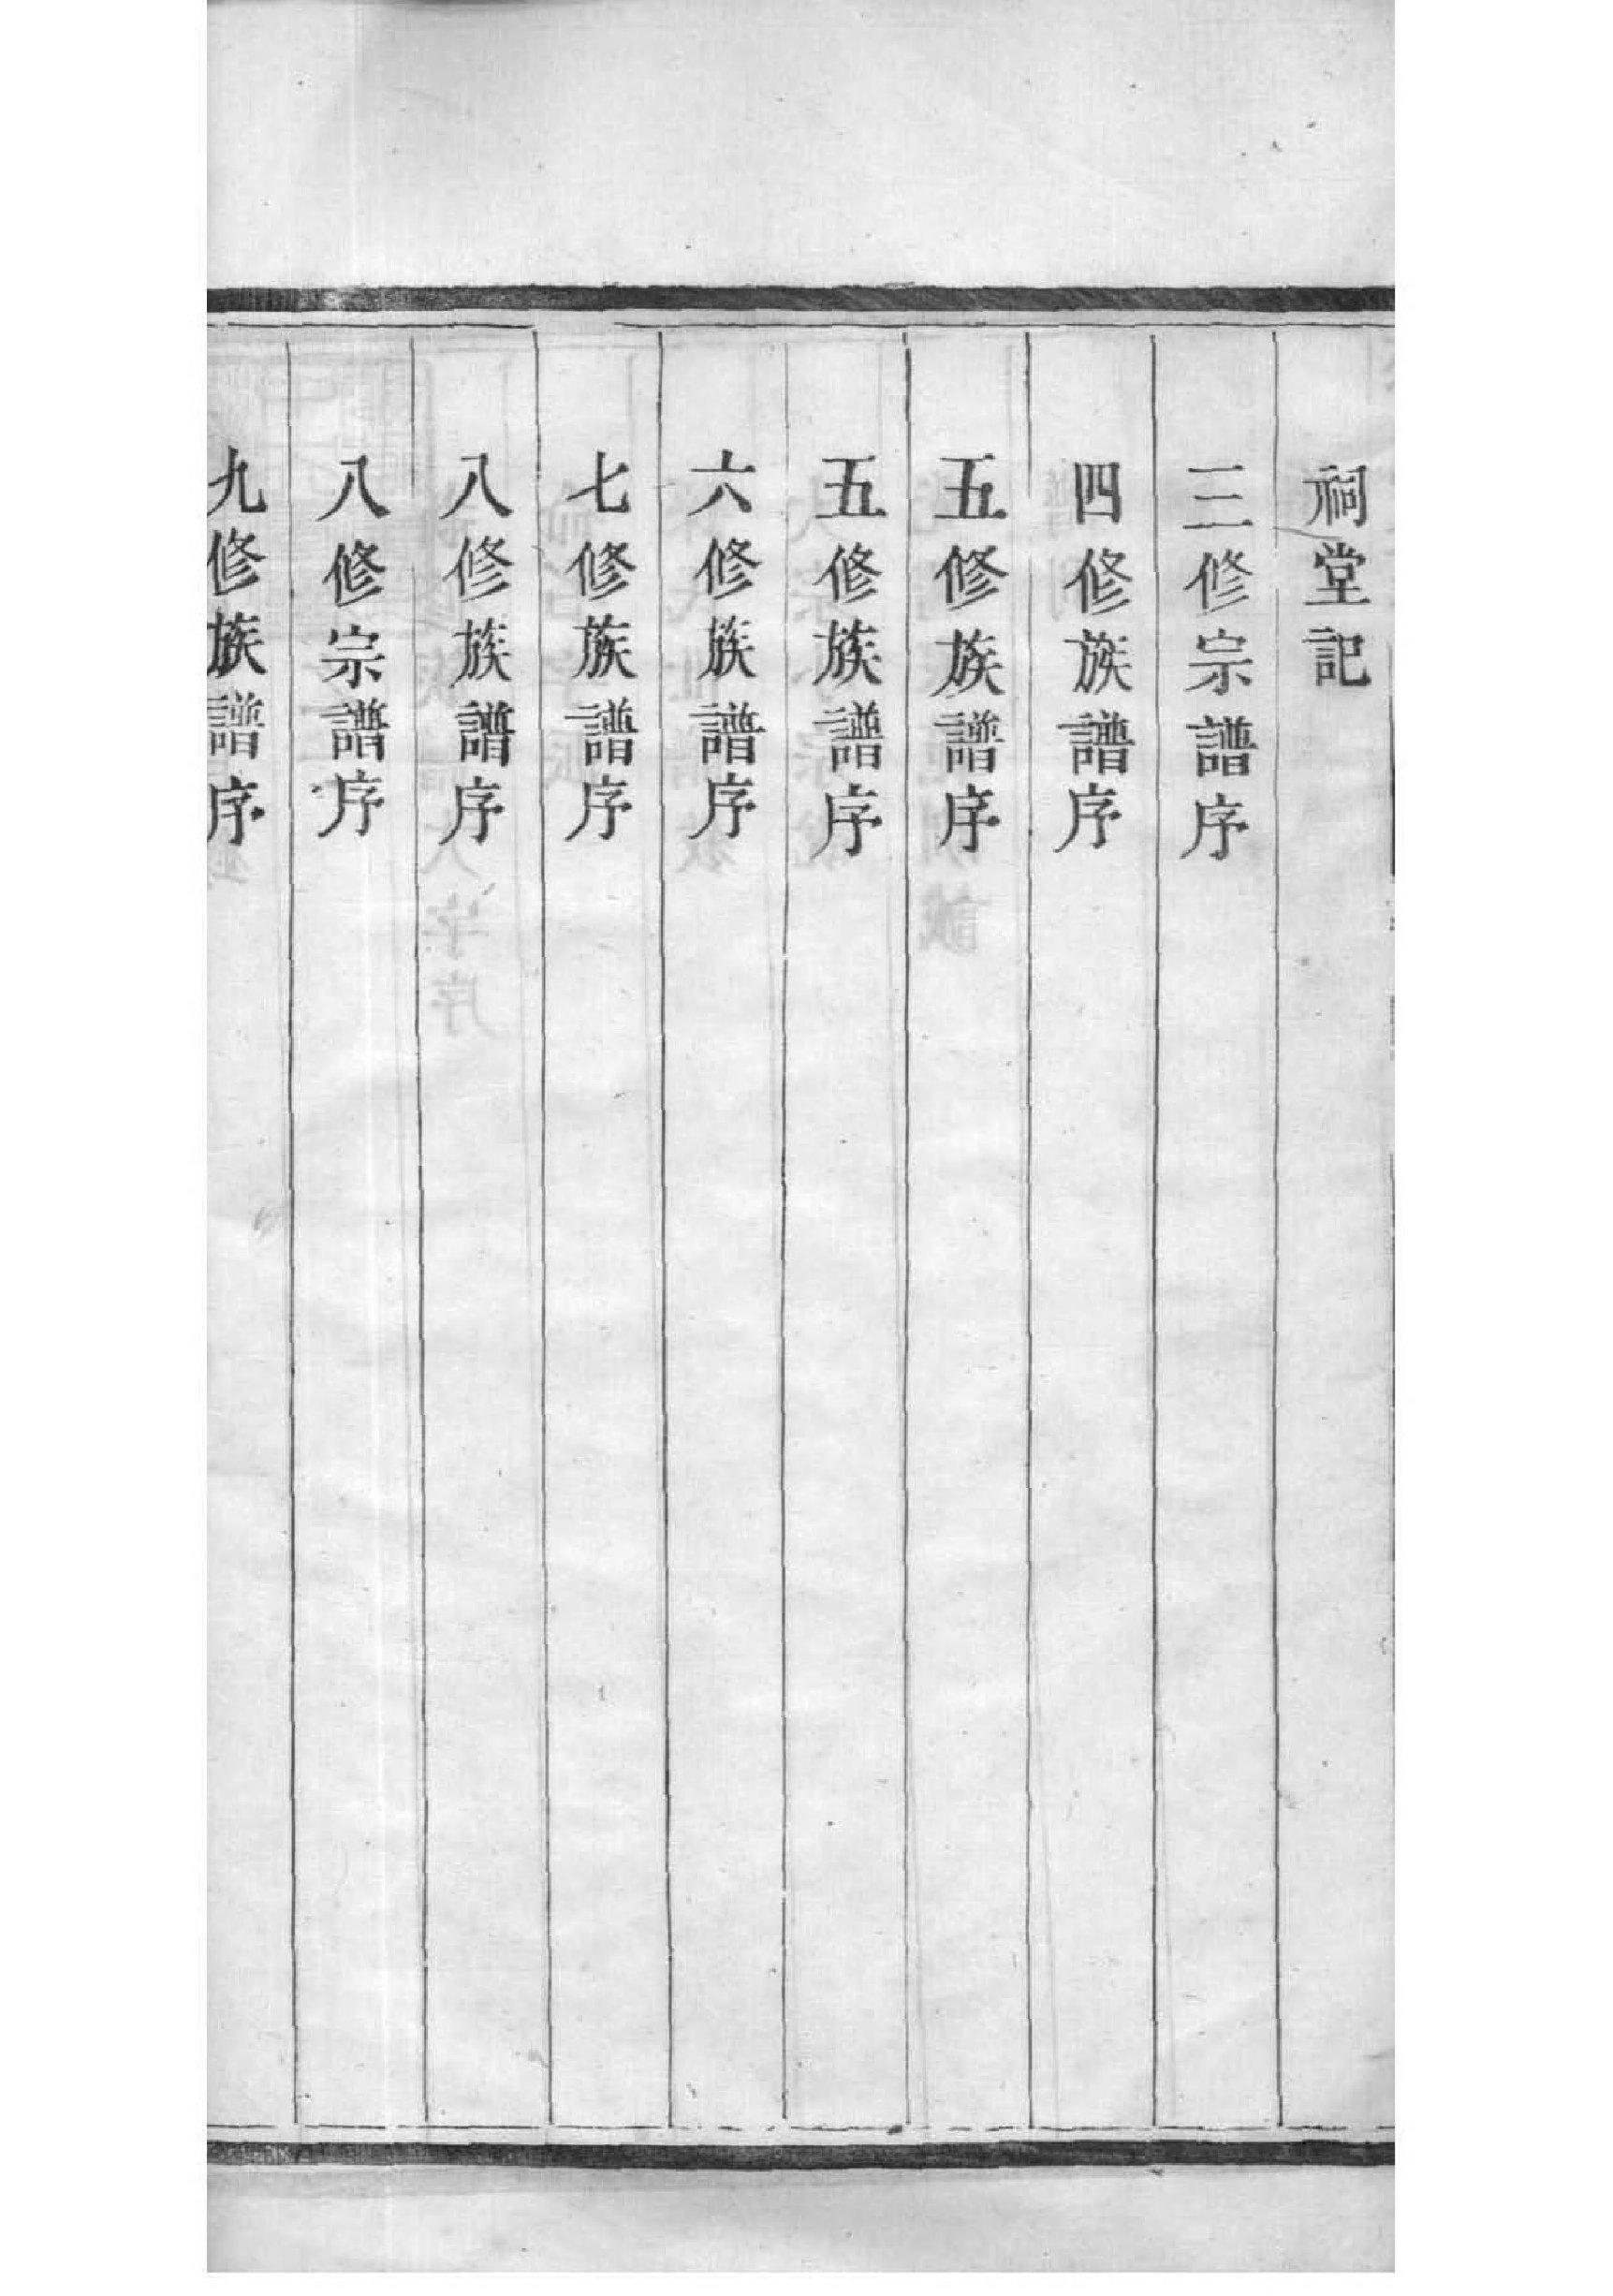 祠堂記
三修宗譜序
四修族譜序
五修族譜序
五修族譜序
六修族譜序
七修族譜序
八修族譜序
八修宗譜序
九修族譜序